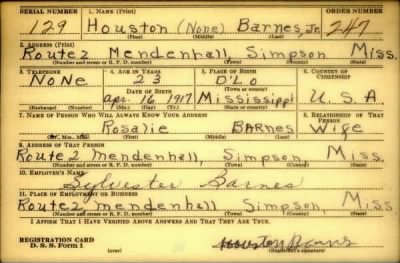 SERIAL NUMBER 1. NAME (Print) ORDER NUMBER
129 Houston (None) Barnes, Jr. 247
(First) (Middle) (Last)
2. ADDRESS (Print)
Route 2 Mendenhall, Simpson Miss.
(Number and street or R. F. D. number) (Town) (County) (State)
3. TELEPHONE 4. AGE IN YEARS 5. PLACE OF BIRTH 6. COUNTRY OF CITIZENSHIP
NoNe 23 D'Lo
DATE OF BIRTH (Town or county)
Apr. 16 1917 Mississippi U.S.A
(Exchange) (Number) (Mo.) (Day) (Yr.) (State or country)
7. NAME OF PERSON WHO WILL ALWAYS KNOW YOUR ADDRESS 8. RELATIONSHIP OF THAT PERSON
Rosalie BARNES Wife
(Mr., Mrs., Miss) (First) (Middle) (Last)
9. ADDRESS OF THAT PERSON
Route 2 Mendenhall, Simpson, Miss.
(Number and street or R. F. D. number) (Town) (County) (State)
10. EMPLOYER'S NAME
Sylvester Barnes
11. PLACE OF EMPLOYMENT OR BUSINESS
Route 2, mendenhall, simpson, Miss.
(Number and street or R. F. D. number) (Town) (County) (State)
I AFFIRM THAT I HAVE VERIFIED ABOVE ANSWERS AND THAT THEY ARE TRUE.
REGISTRATION CARD
D. S. S. Form 1 (over) Houston Barns
(Registrant's signature)